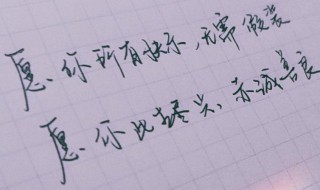 愿你所有快乐,无需假装
愿你此生尽兴、赤诚善良